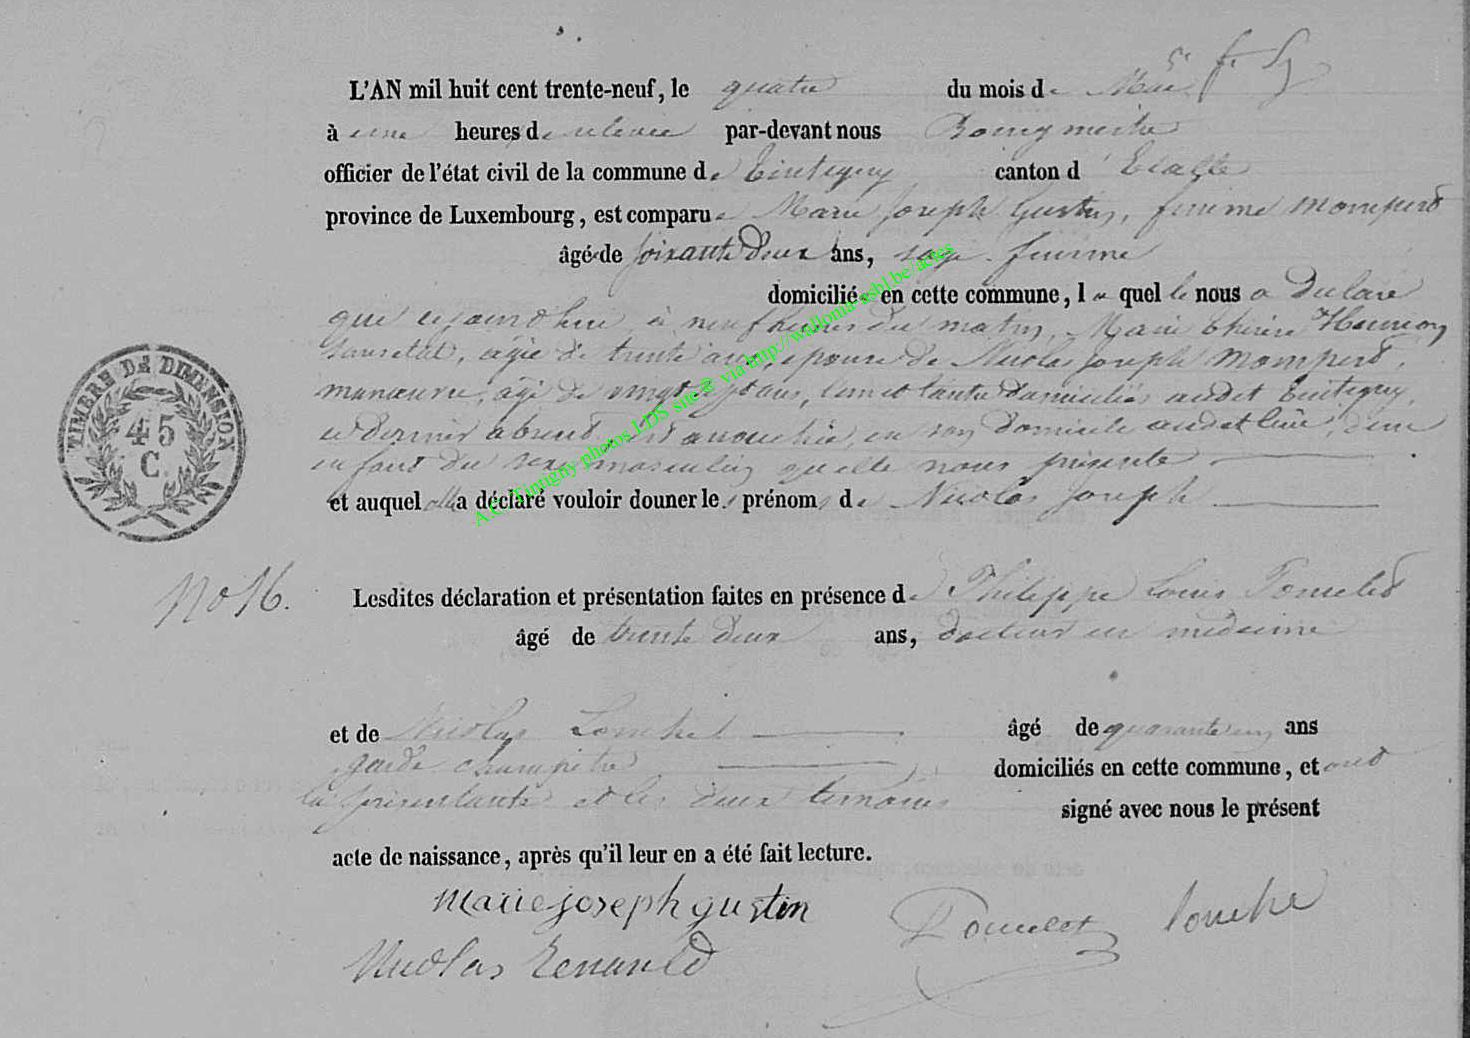 5e f. S
L'AN mil huit cent trente-neuf, le quatre du mois de Mai
à une heures de relevée par-devant nous Bourgmestre
officier de l'état civil de la commune de Tintigny canton d'Etalle
province de Luxembourg, est comparue Marie Joseph Gustin, femme Momperd
âgé de soixante deux ans, sage-femme
domiciliée en cette commune, laquelle nous a déclaré
que cejourd'hui à neuf heures du matin, Marie Thérèse Henrion
sans état, âgée de trente ans, épouse de Nicolas Joseph Momperd,
manœuvre, âgé de vingt ans, l'un et l'autre domiciliés audit Tintigny,
ce dernier absent, est accouchée, en son domicile audit lieu, d'un
enfant du sexe masculin qu'elle nous présente
et auquel elle a déclaré vouloir donner les prénoms de Nicolas Joseph
No 16.
Lesdites déclaration et présentation faites en présence de Philippe Louis Poncelet
âgé de trente deux ans, docteur en médecine
et de Nicolas Louchet âgé de quarante un ans
garde champêtre domiciliés en cette commune, et ont
la présentante et les deux témoins signé avec nous le présent
acte de naissance, après qu'il leur en a été fait lecture.
marie joseph gustin Poncelet Louchet
Nicolas Renauld
TIMBRE DE DIMENSION
45
C.
A.C. Tintigny photos LDS site @ via http://wallonia-asbl.be/actes